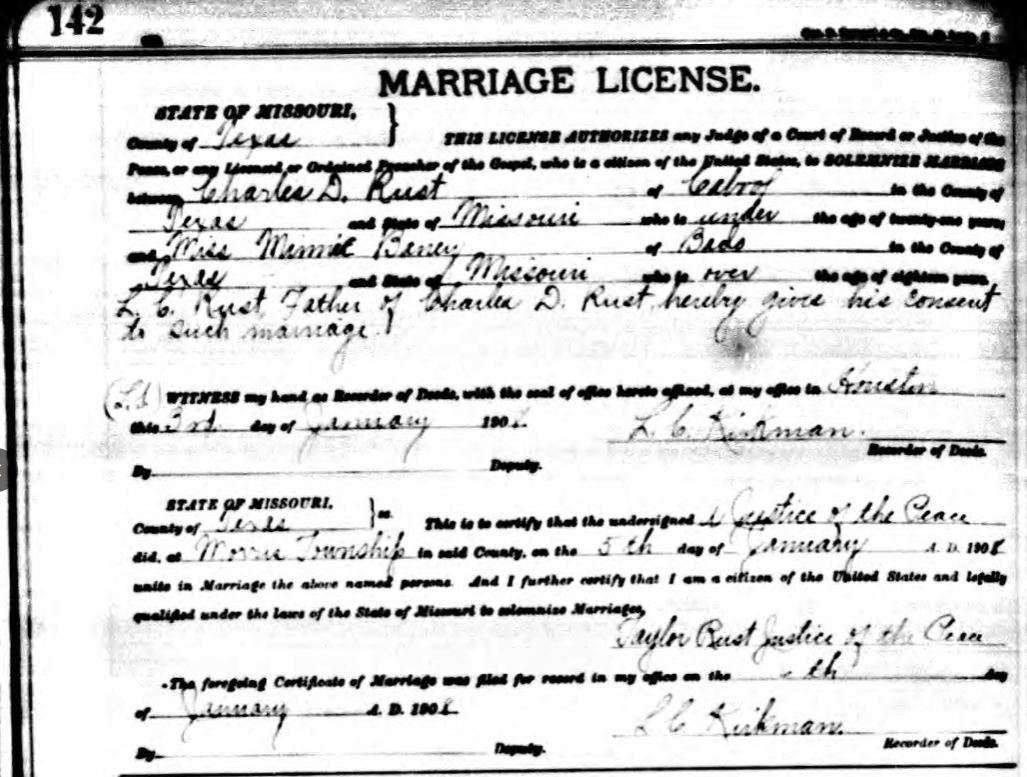 142
MARRIAGE LICENSE.
STATE OF MISSOURI,
County of Texas
THIS LICENSE AUTHORIZES any Judge of a Court of Record or Justice of the
Peace, or any Licensed or Ordained Preacher of the Gospel, who is a citizen of the United States, to SOLEMNIZE MARRIAGE
between Charles D. Rust of Cabool in the County of
Texas and State of Missouri who is under the age of twenty-one years,
and Miss Minnie Baney of Bado in the County of
Texas and State of Missouri who is over the age of eighteen years,
L. C. Rust, Father of Charles D. Rust, hereby gives his consent
to such marriage.
WITNESS my hand as Recorder of Deeds, with the seal of office hereto affixed, at my office in Houston
this 3rd day of January 1908.
L. C. Kirkman.
Recorder of Deeds.
By Deputy.
STATE OF MISSOURI,
County of Texas ss.
This is to certify that the undersigned a Justice of the Peace
did, at Morris Township in said County, on the 5th day of January A. D. 1908
unite in Marriage the above named persons. And I further certify that I am a citizen of the United States and legally
qualified under the laws of the State of Missouri to solemnize Marriages,
Taylor Rust Justice of the Peace
The foregoing Certificate of Marriage was filed for record in my office on the th day
of January A. D. 1908
L. C. Kirkman.
Recorder of Deeds.
By Deputy.